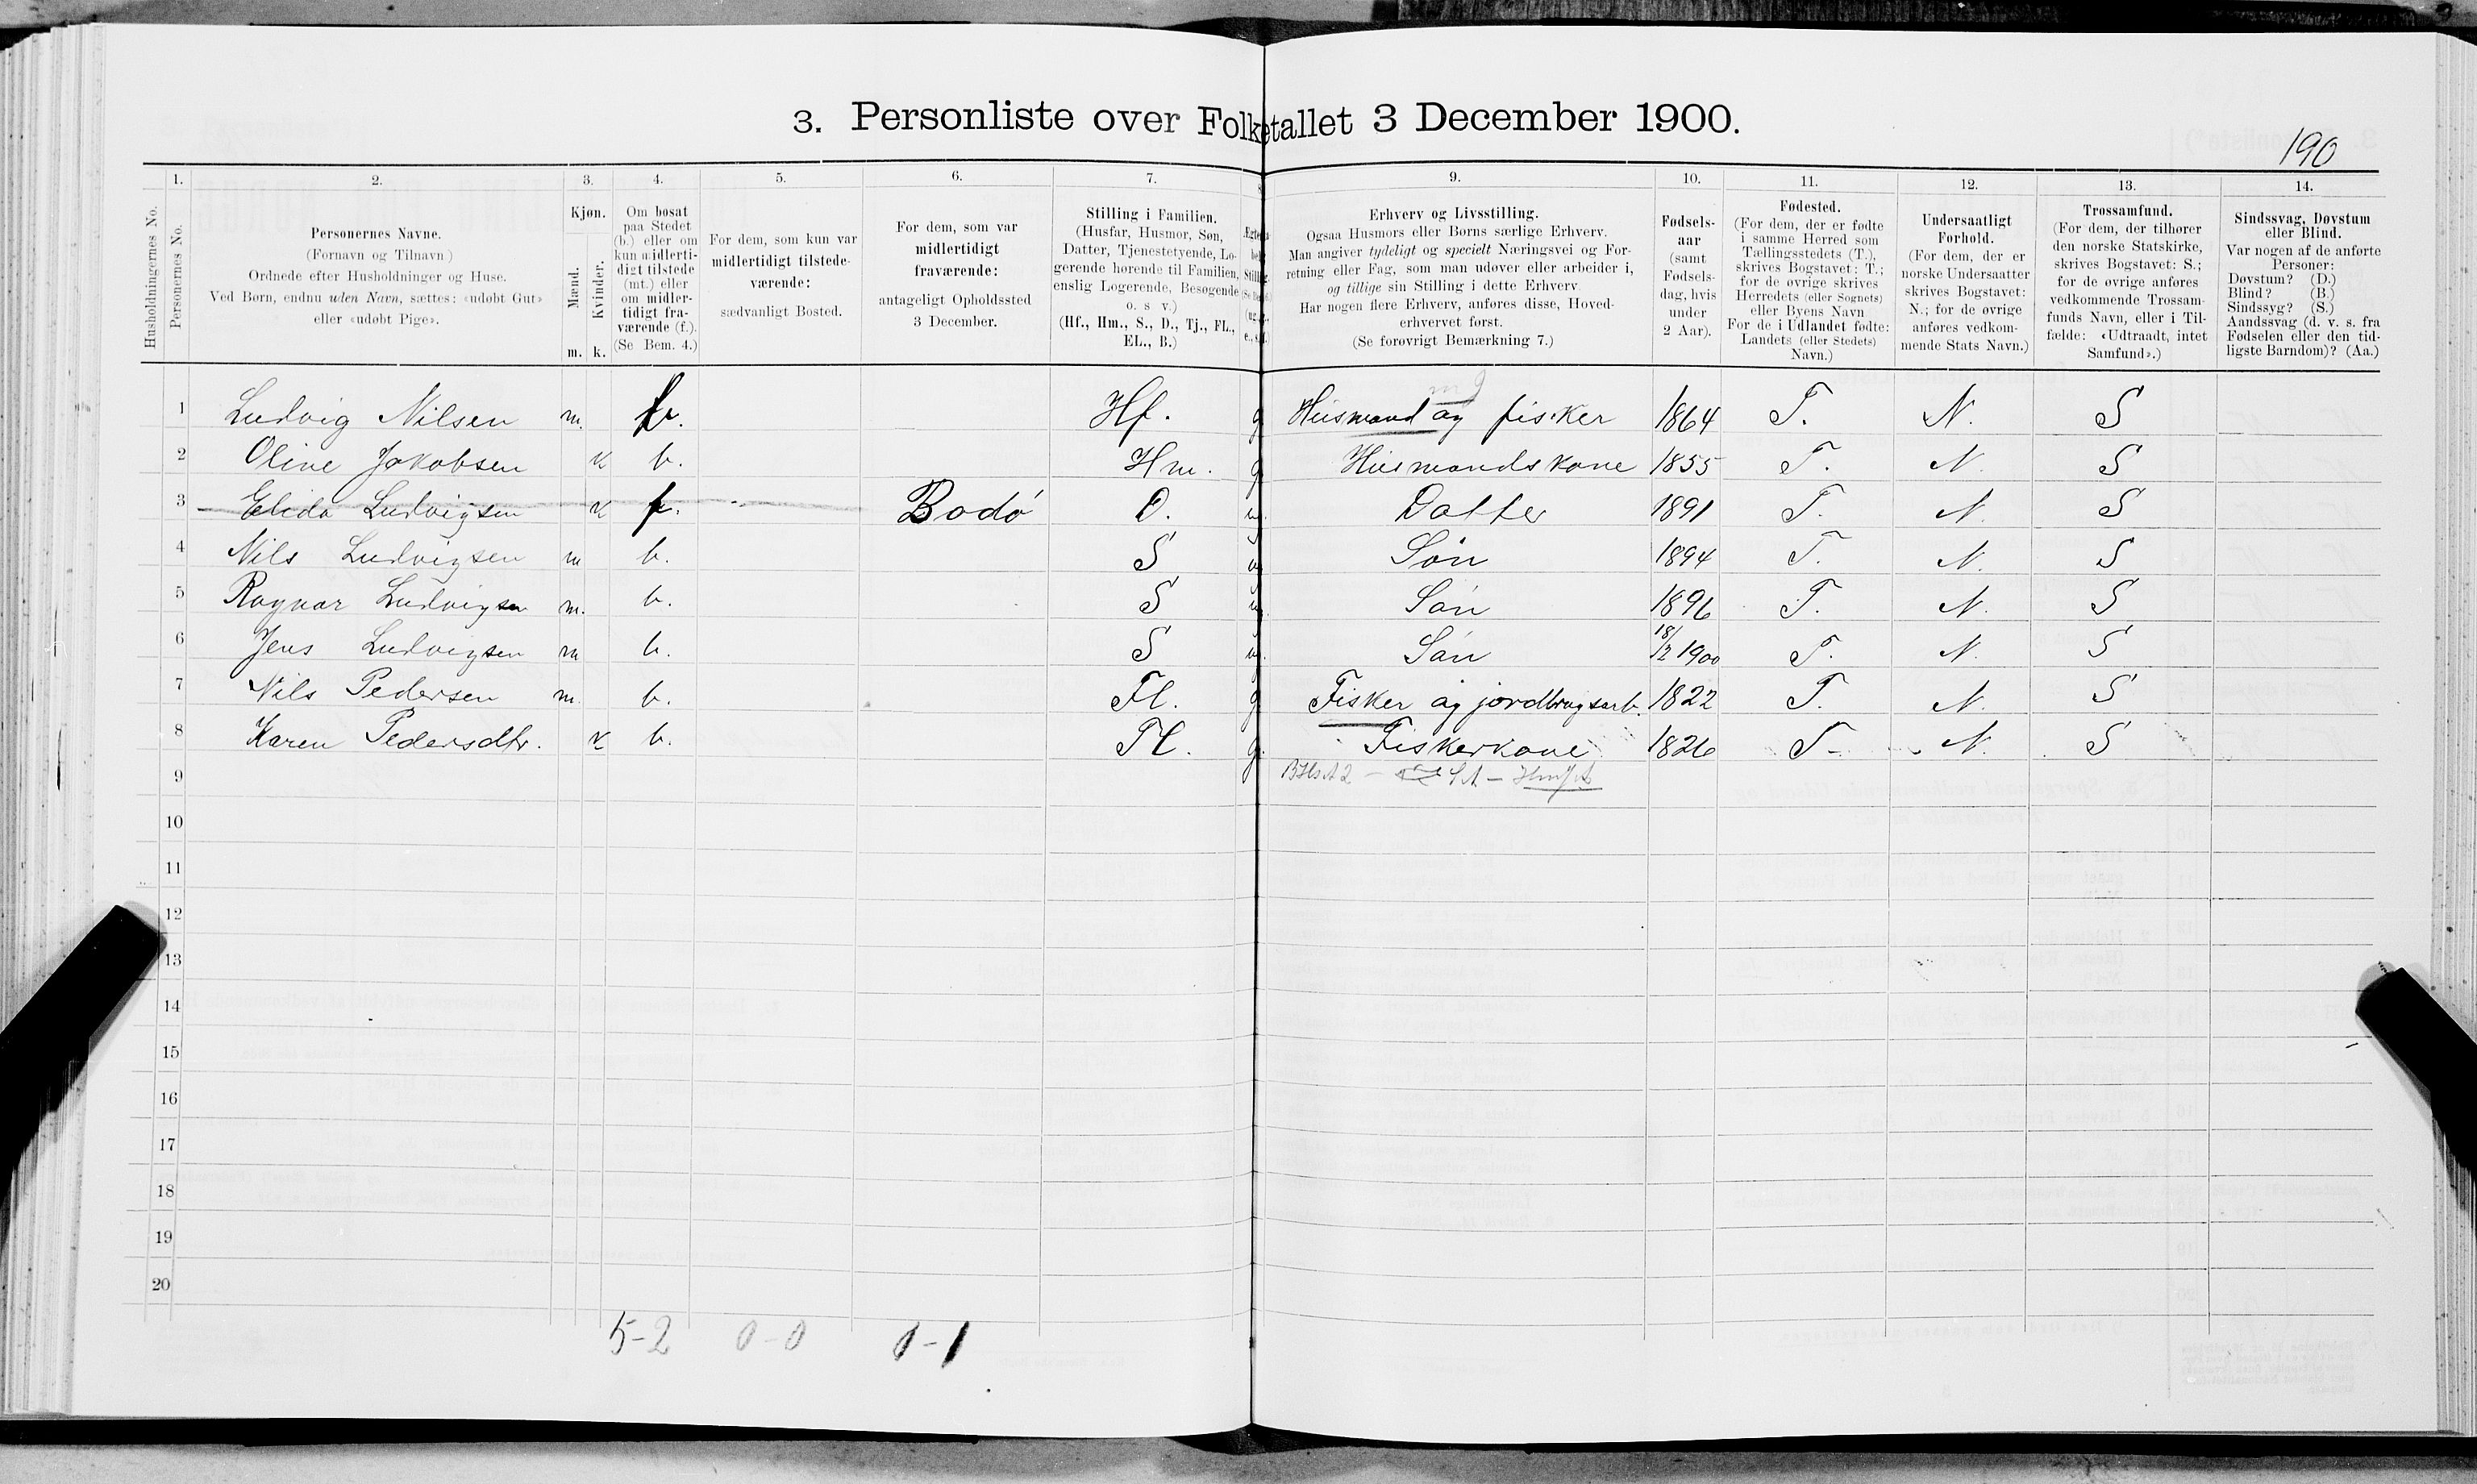 3. Personliste over Folketallet 3 December 1900.
190
1. 2. 3. 4. 5. 6. 7. 9. 10. 11. 12. 13. 14.
Husholdningernes No.
Personernes No.
Personernes Navne.
(Fornavn og Tilnavn)
Ordnede efter Husholdninger og Huse.
Ved Børn, endnu uden Navn, sættes: «udøbt Gut»
eller «udøbt Pige».
Kjøn.
Mænd.
Kvinder.
m. k.
Om bosat
paa Stedet
(b.) eller om
kun midlerti-
digt tilstede
(mt.) eller
om midler-
tidigt fra-
værende (f.).
(Se Bem. 4.)
For dem, som kun var
midlertidigt tilstede-
værende:
sædvanligt Bosted.
For dem, som var
midlertidigt
fraværende:
antageligt Opholdssted
3 December.
Stilling i Familien.
(Husfar, Husmor, Søn,
Datter, Tjenestetyende, Lo-
gerende hørende til Familien,
enslig Logerende, Besøgende
o. s v.)
(Hf., Hm., S., D., Tj., FL.,
EL., B.)
Erhverv og Livsstilling.
Ogsaa Husmors eller Børns særlige Erhverv.
Man angiver tydeligt og specielt Næringsvei og For-
retning eller Fag, som man udøver eller arbeider i,
og tillige sin Stilling i dette Erhverv.
Har nogen flere Erhverv, anføres disse, Hoved-
erhvervet først.
(Se forøvrigt Bemærkning 7.)
Fødsels-
aar
(samt
Fødsels-
dag, hvis
under
2 Aar).
Fødested.
(For dem, der er fødte
i samme Herred som
Tællingsstedets (T.),
skrives Bogstavet: T.;
for de øvrige skrives
Herredets (eller Sognets)
eller Byens Navn
For de i Udlandet fødte:
Landets (eller Stedets)
Navn.)
Undersaatligt
Forhold.
(For dem, der er
norske Undersaatter
skrives Bogstavet:
N.; for de øvrige
anføres vedkom-
mende Stats Navn.)
Trossamfund.
(For dem, der tilhører
den norske Statskirke,
skrives Bogstavet: S.;
for de øvrige anføres
vedkommende Trossam-
funds Navn, eller i Til-
fælde: «Udtraadt, intet
Samfund».)
Sindssvag, Døvstum
eller Blind.
Var nogen af de anførte
Personer:
Døvstum? (D.)
Blind? (B.)
Sindssyg? (S.)
Aandssvag (d. v. s. fra
Fødselen eller den tid-
ligste Barndom)? (Aa.)
1 Ludvig Nilsen m. b. Hf. g Husmand og fisker 1864 T. N. S
2 Oline Jakobsen k b. Hm. g Husmandskone 1855 T. N. S
3 Elida Ludvigsen k f. Bodø D. u. Datter 1891 T. N. S
4 Nils Ludvigsen m b. S u Søn 1894 T. N. S
5 Ragnar Ludvigsen m. b. S u. Søn 1896 T. N. S
6 Jens Ludvigsen m b. S u. Søn 18/2 1900 T. N. S
7 Nils Pedersen m. b. Fl. g Fisker og jordbrugsarb. 1822 T. N. S
8 Karen Pedersdtr. k b. Fl. g. Fiskerkone 1826 T. N. S
9
10
11
12
13
14
15
16
17
18
19
20
5-2 0-0 0-1